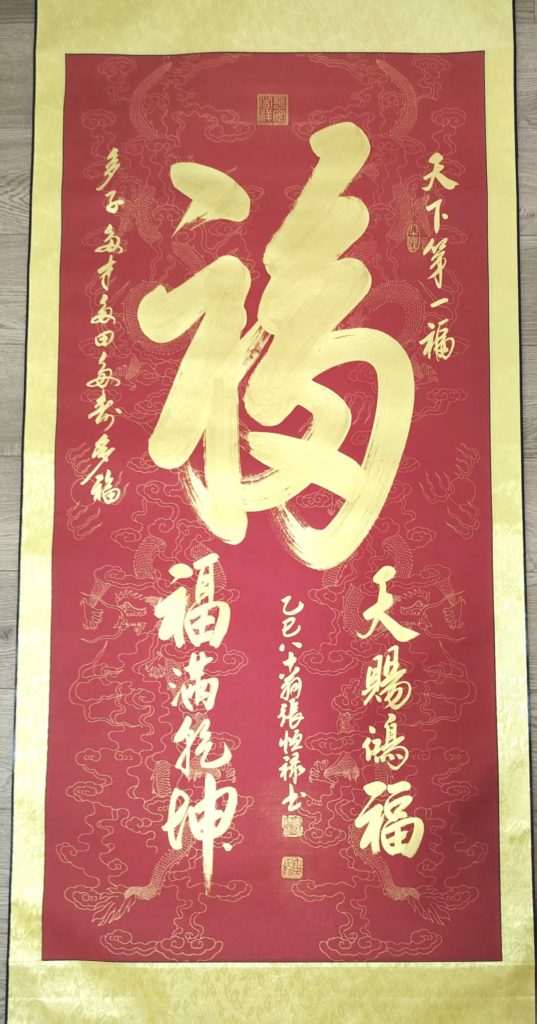 福
天下第一福
多子多才多田多寿多福
天赐鸿福
福满乾坤
乙巳八十翁張恒禄书